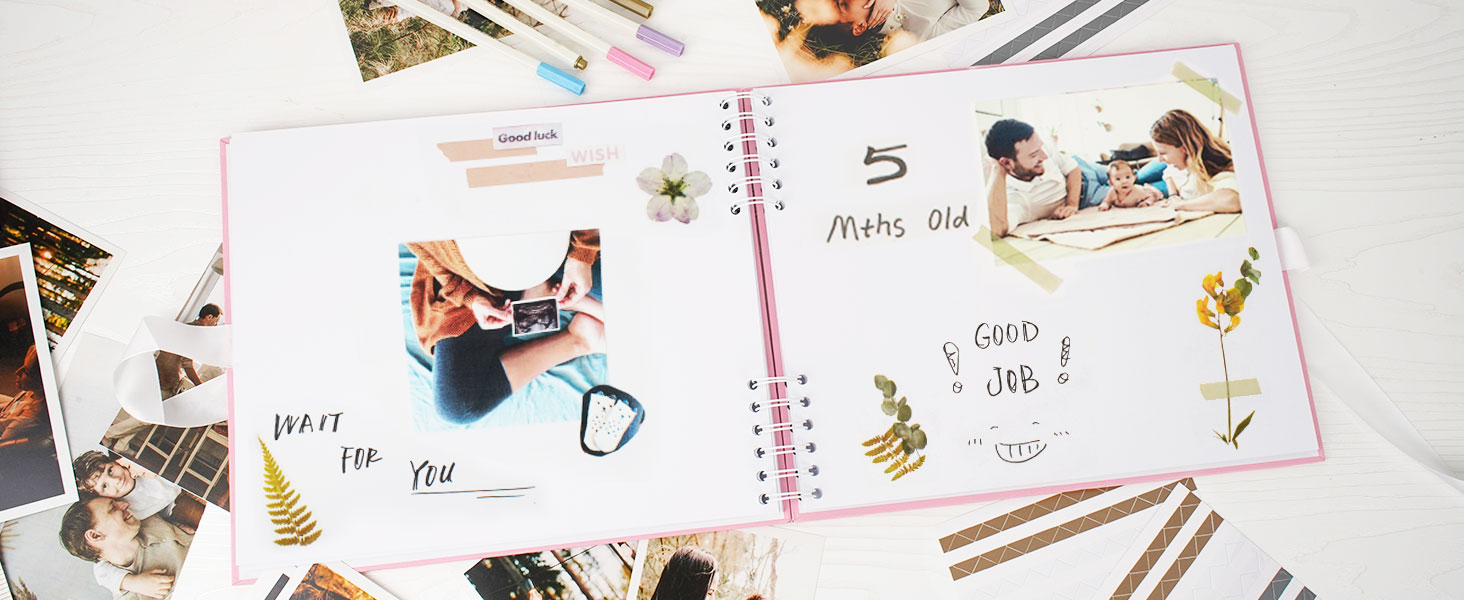 Good luck
WISH
WAIT
FOR
YOU
5
Mths Old
GOOD
JOB